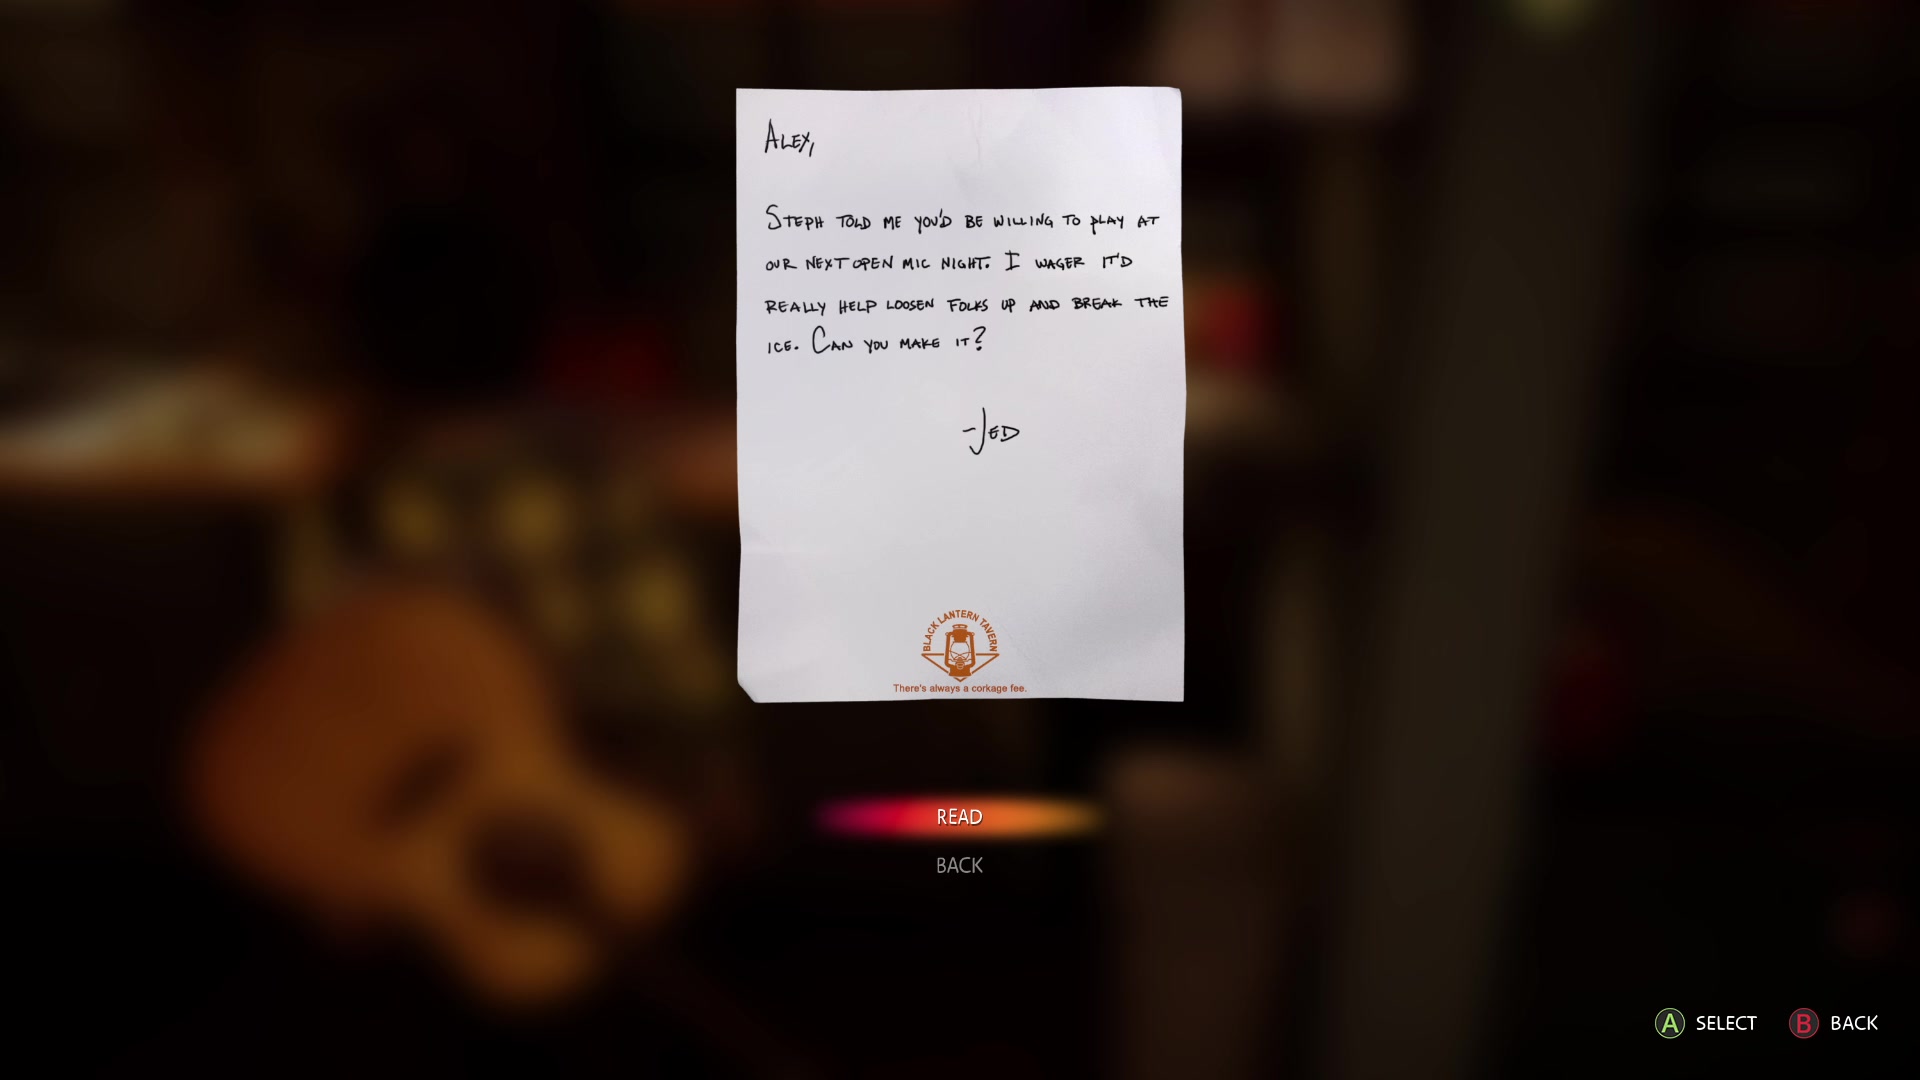 ALEX,
STEPH TOLD ME YOU'D BE WILLING TO PLAY AT
OUR NEXT OPEN MIC NIGHT. I WAGER IT'D
REALLY HELP LOOSEN FOLKS UP AND BREAK THE
ICE. CAN YOU MAKE IT?
-JED
BLACK LANTERN TAVERN
There's always a corkage fee.
READ
BACK
A SELECT B BACK